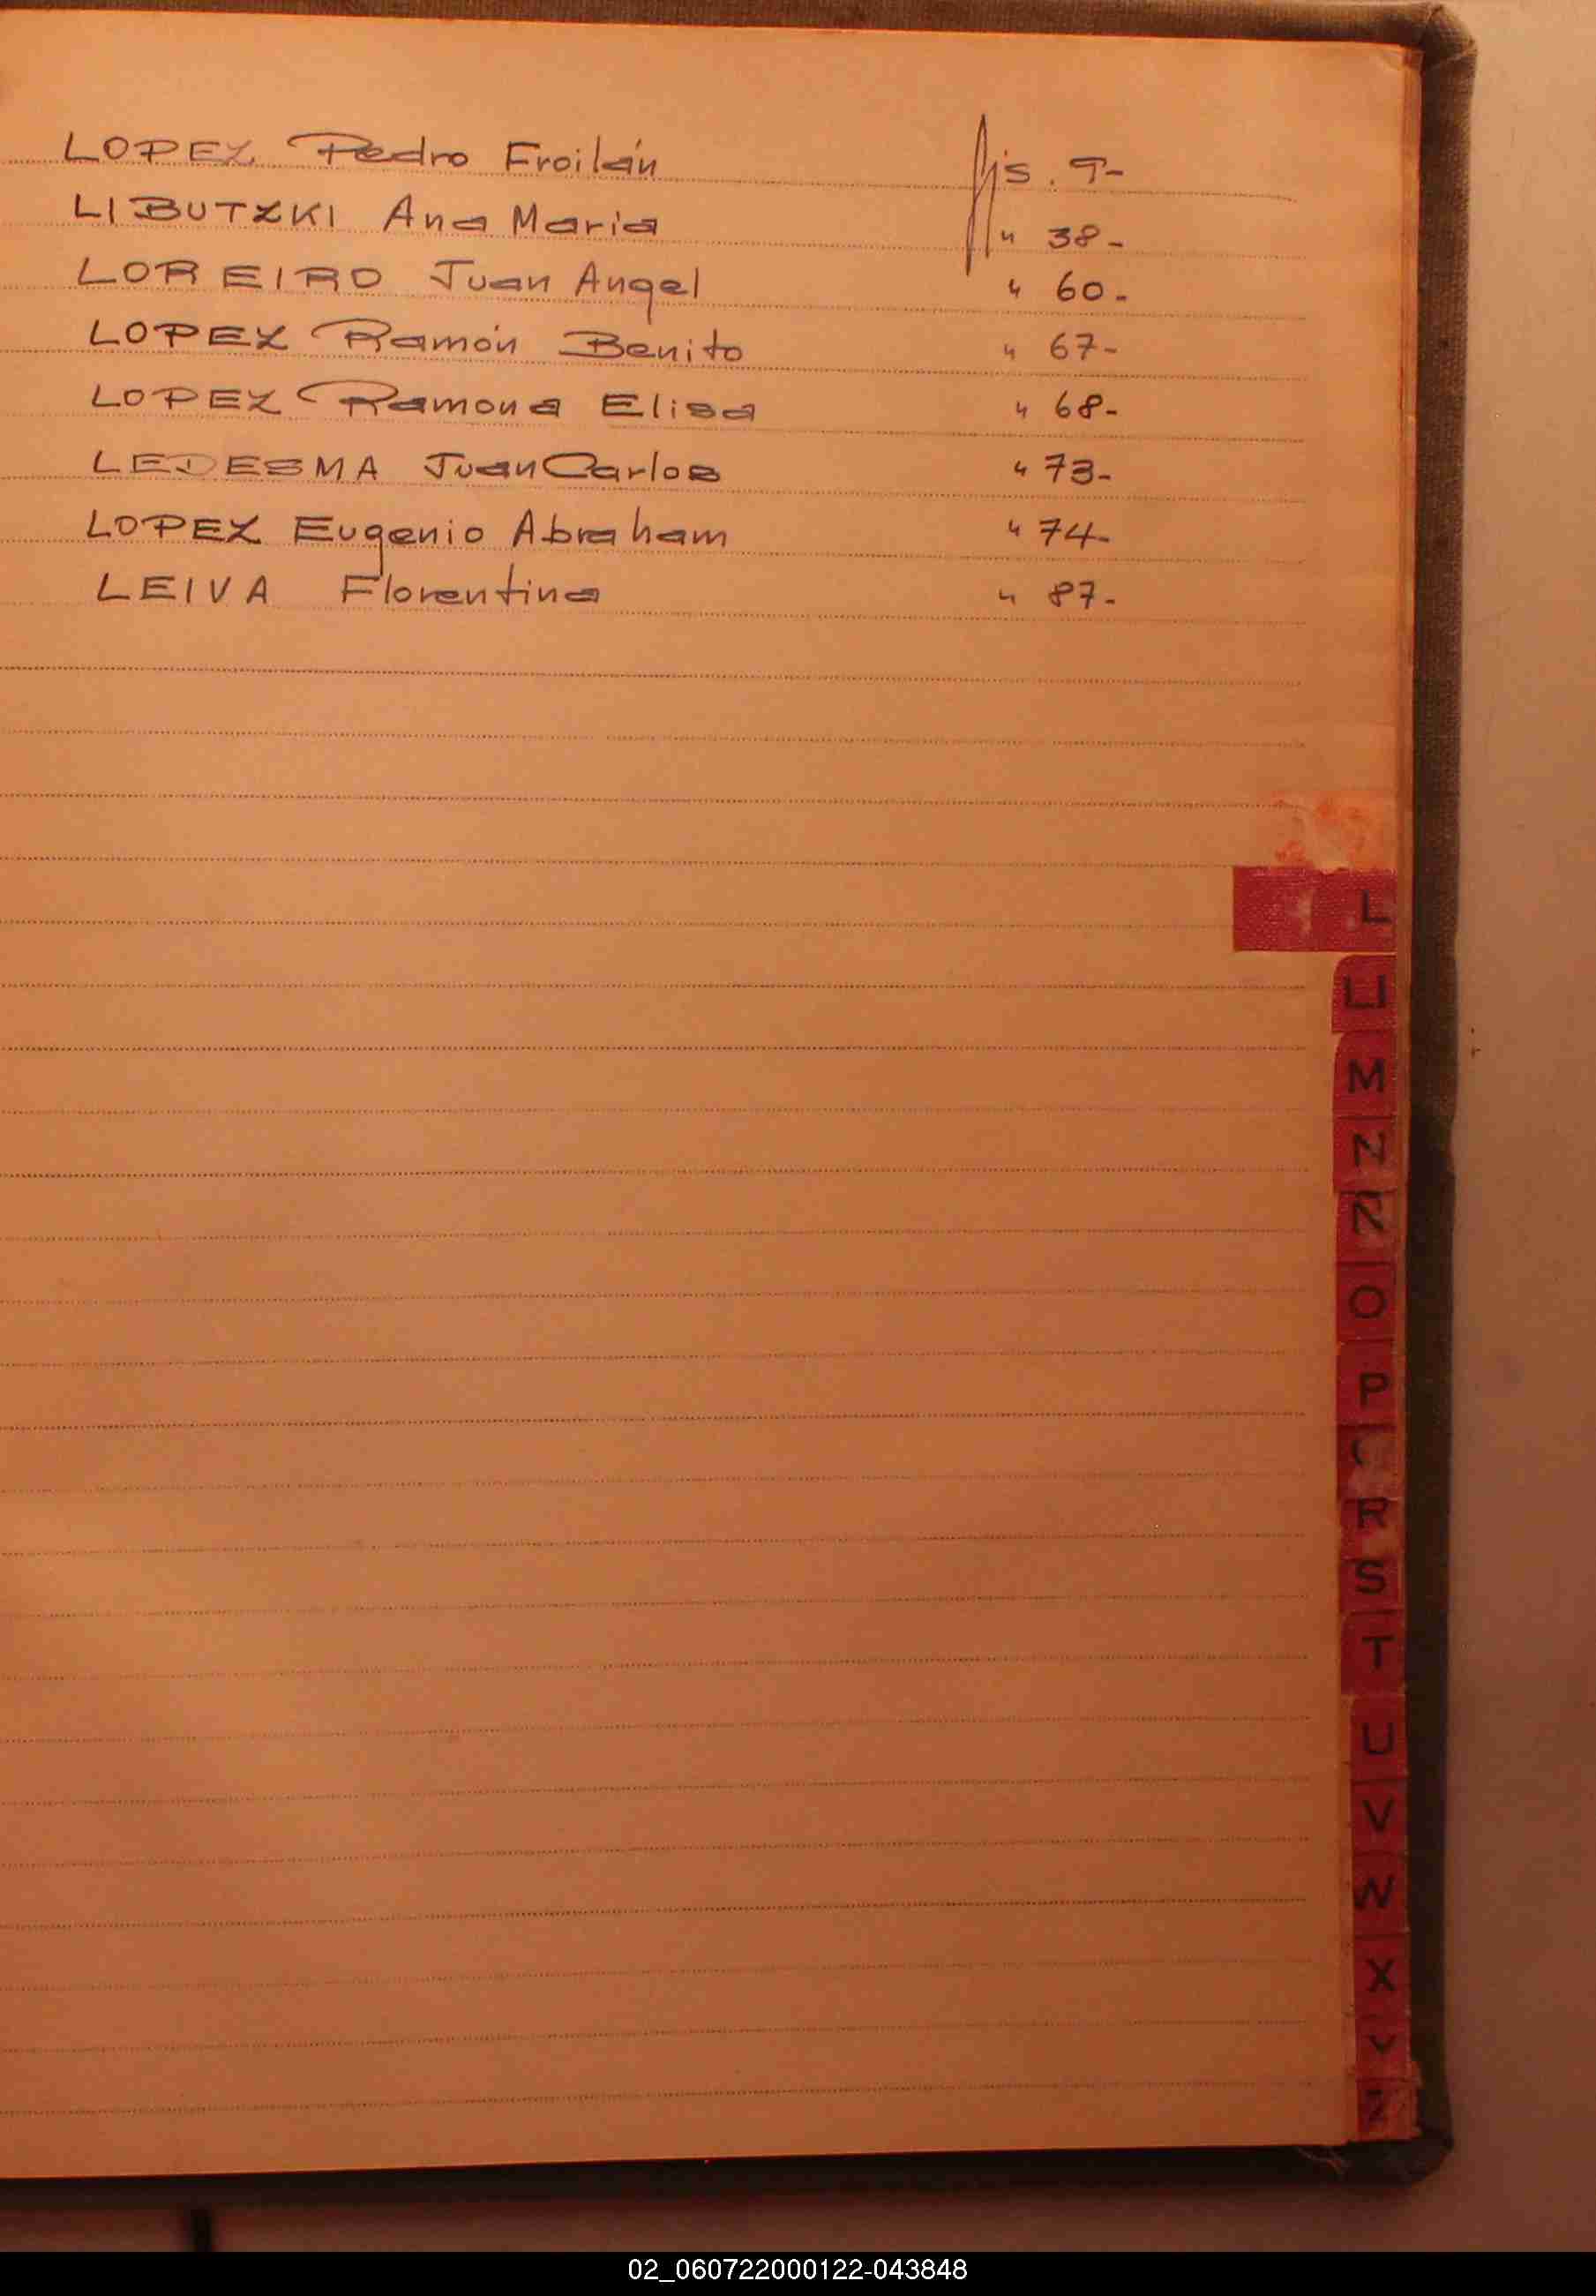 LOPEZ Pedro Froilán fjs. 9-
LIBUTZKI Ana Maria " 38-
LOREIRO Juan Angel " 60-
LOPEZ Ramón Benito " 67-
LOPEZ Ramona Elisa " 68-
LEDESMA Juan Carlos " 73-
LOPEZ Eugenio Abraham " 74-
LEIVA Florentina " 87-
L
Ll
M
N
Ñ
O
P
R
S
T
U
V
W
X
Y
Z
02_060722000122-043848